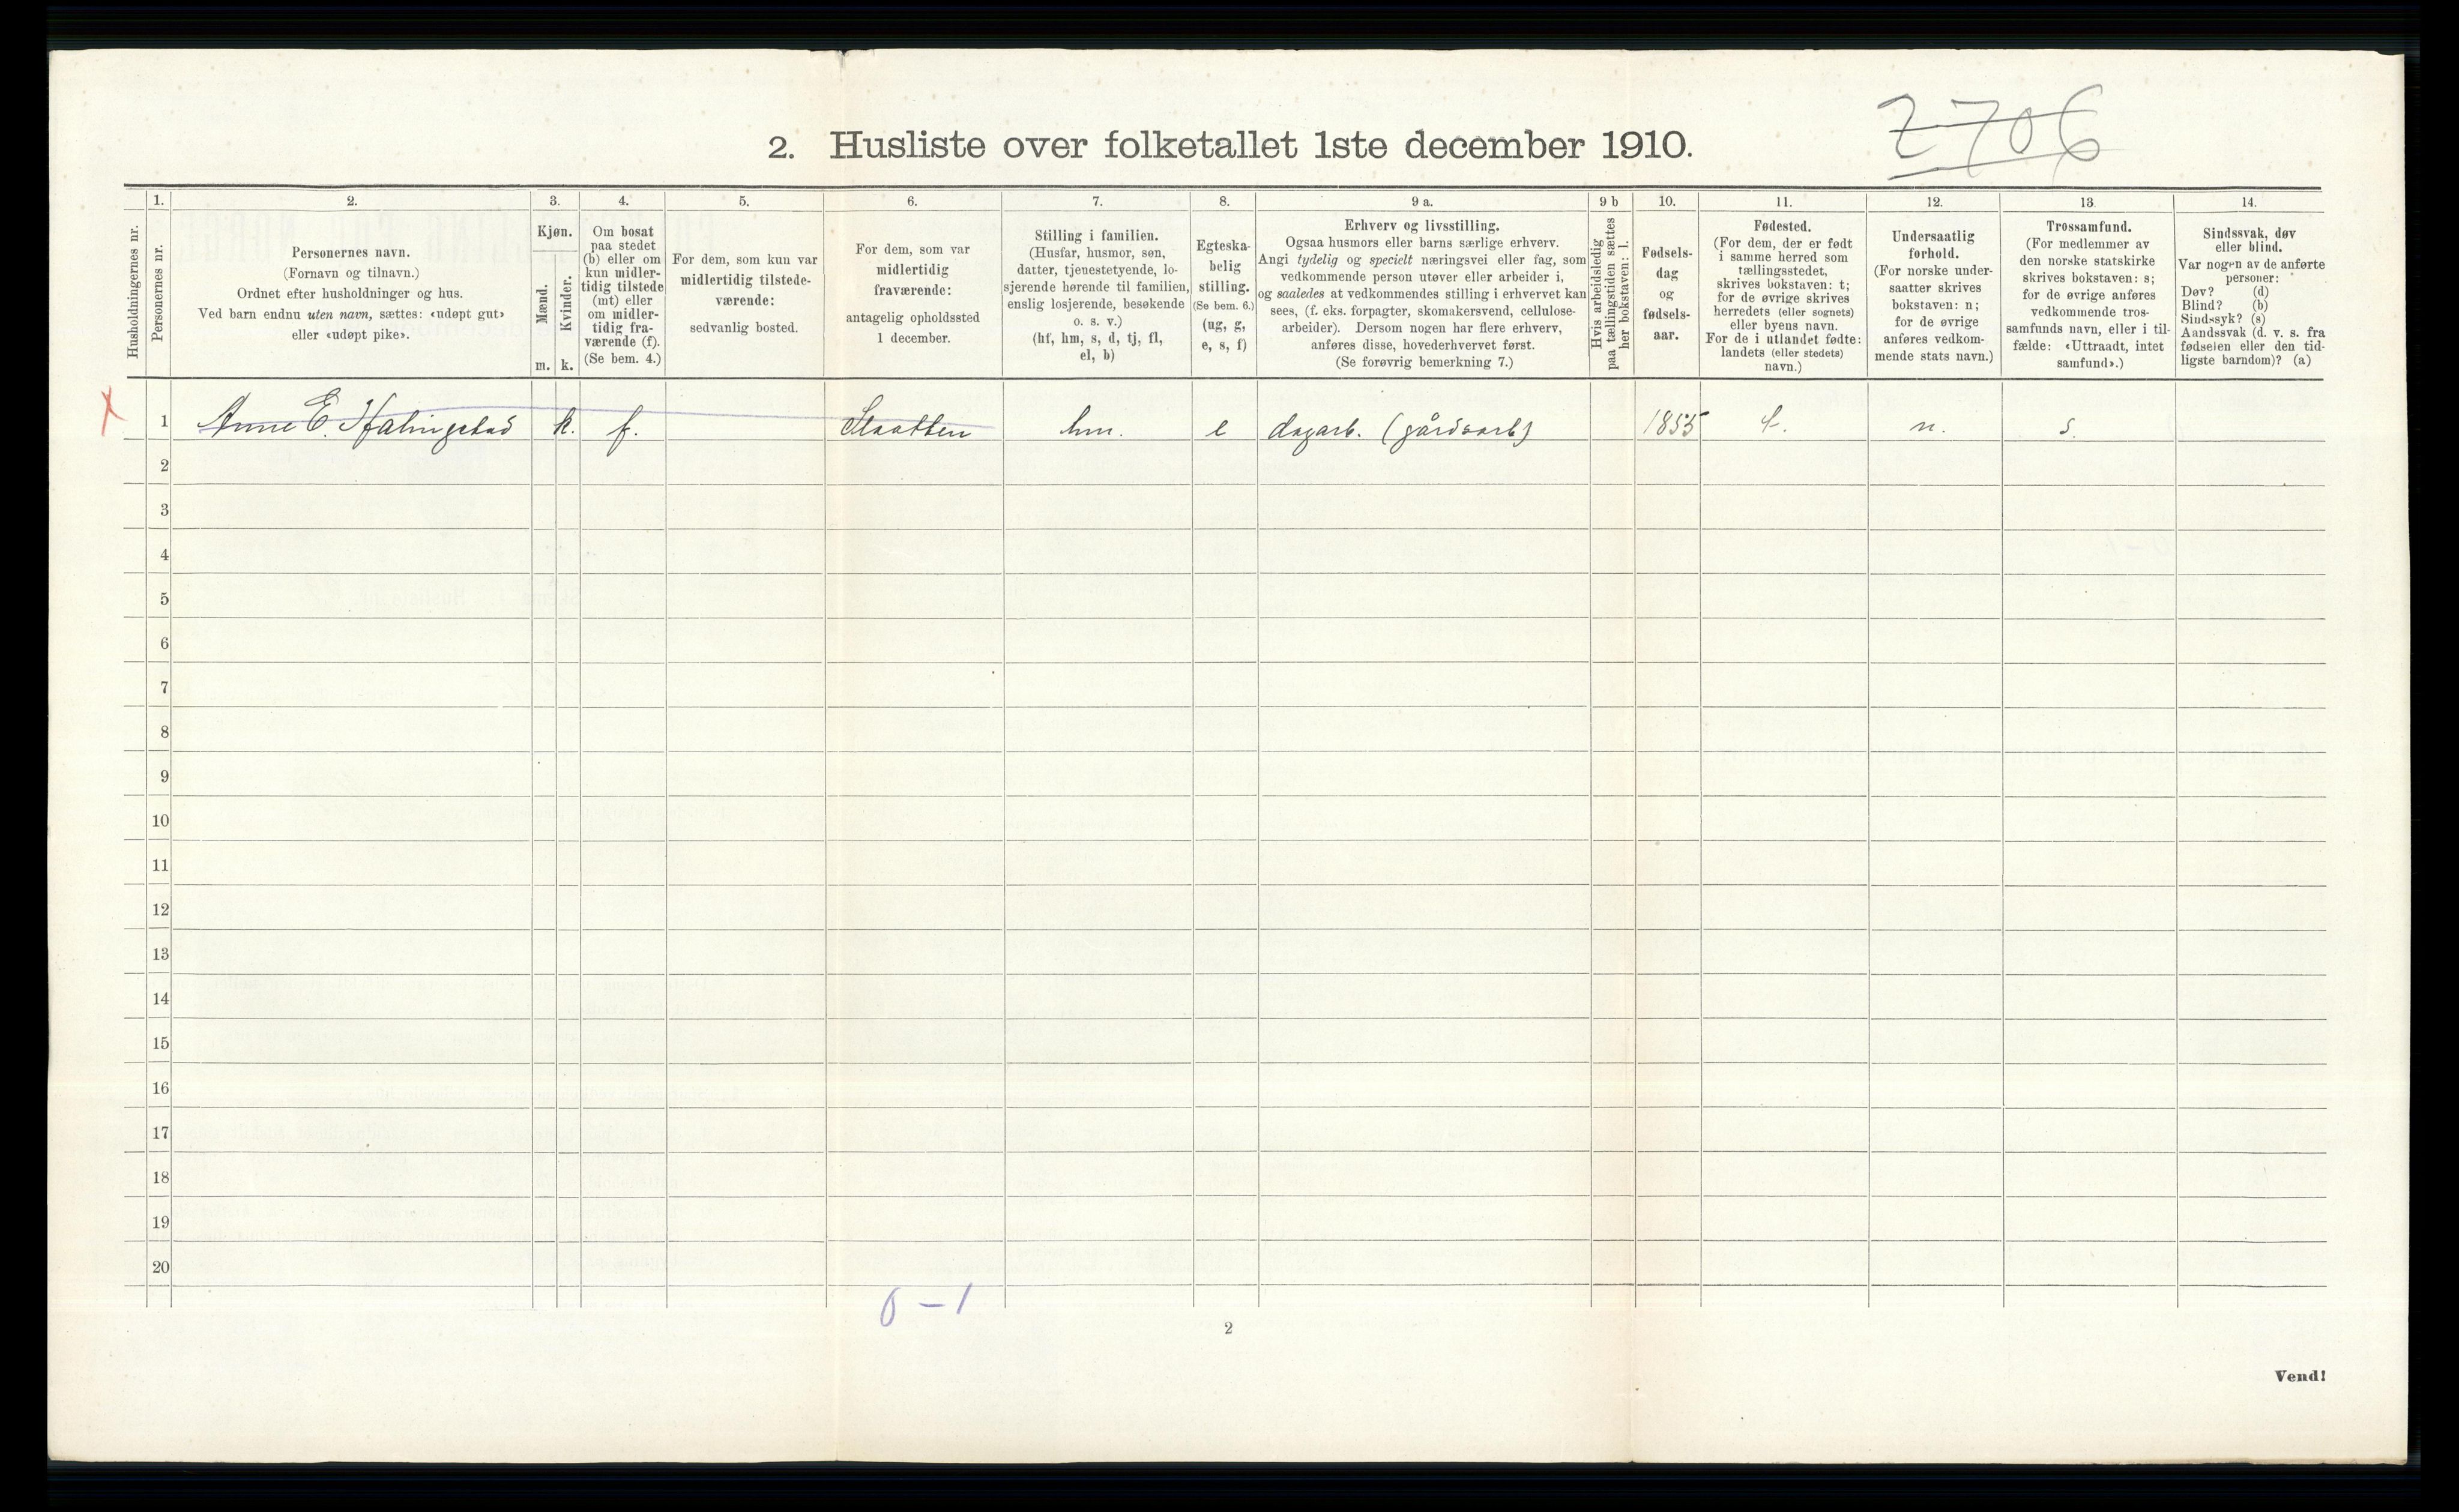 2706
2. Husliste over folketallet 1ste december 1910.
1. 2. 3. 4. 5. 6. 7. 8. 9 a. 9 b 10. 11. 12. 13. 14.
Husholdningernes nr.
Personernes nr.
Personernes navn.
(Fornavn og tilnavn.)
Ordnet efter husholdninger og hus.
Ved barn endnu uten navn, sættes: «udøpt gut»
eller «udøpt pike».
Kjøn.
Mænd.
Kvinder.
m. k.
Om bosat
paa stedet
(b) eller om
kun midler-
tidig tilstede
(mt) eller
om midler-
tidig fra-
værende (f).
(Se bem. 4.)
For dem, som kun var
midlertidig tilstede-
værende:
sedvanlig bosted.
For dem, som var
midlertidig
fraværende:
antagelig opholdssted
1 december.
Stilling i familien.
(Husfar, husmor, søn,
datter, tjenestetyende, lo-
sjerende hørende til familien,
enslig losjerende, besøkende
o. s. v.)
(hf, hm, s, d, tj, fl,
el, b)
Egteska-
belig
stilling.
(Se bem. 6.)
(ug, g,
e, s, f)
Erhverv og livsstilling.
Ogsaa husmors eller barns særlige erhverv.
Angi tydelig og specielt næringsvei eller fag, som
vedkommende person utøver eller arbeider i,
og saaledes at vedkommendes stilling i erhvervet kan
sees, (f. eks. forpagter, skomakersvend, cellulose-
arbeider). Dersom nogen har flere erhverv,
anføres disse, hovederhvervet først.
(Se forøvrig bemerkning 7.)
Hvis arbeidsledig
paa tællingstiden sættes
her bokstaven: l.
Fødsels-
dag
og
fødsels-
aar.
Fødested.
(For dem, der er født
i samme herred som
tællingsstedet,
skrives bokstaven: t;
for de øvrige skrives
herredets (eller sognets)
eller byens navn.
For de i utlandet fødte:
landets (eller stedets)
navn.)
Undersaatlig
forhold.
(For norske under-
saatter skrives
bokstaven: n;
for de øvrige
anføres vedkom-
mende stats navn.)
Trossamfund.
(For medlemmer av
den norske statskirke
skrives bokstaven: s;
for de øvrige anføres
vedkommende tros-
samfunds navn, eller i til-
fælde: «Uttraadt, intet
samfund».)
Sindssvak, døv
eller blind.
Var nogen av de anførte
personer:
Døv? (d)
Blind? (b)
Sindssyk? (s)
Aandssvak (d. v. s. fra
fødselen eller den tid-
ligste barndom)? (a)
X 1 Anne E. k. f. hm. e dagarb. (gårdsarb) 1855 t. n. s.
2
3
4
5
6
7
8
9
10
11
12
13
14
15
16
17
18
19
20
0 – 1
2
Vend!